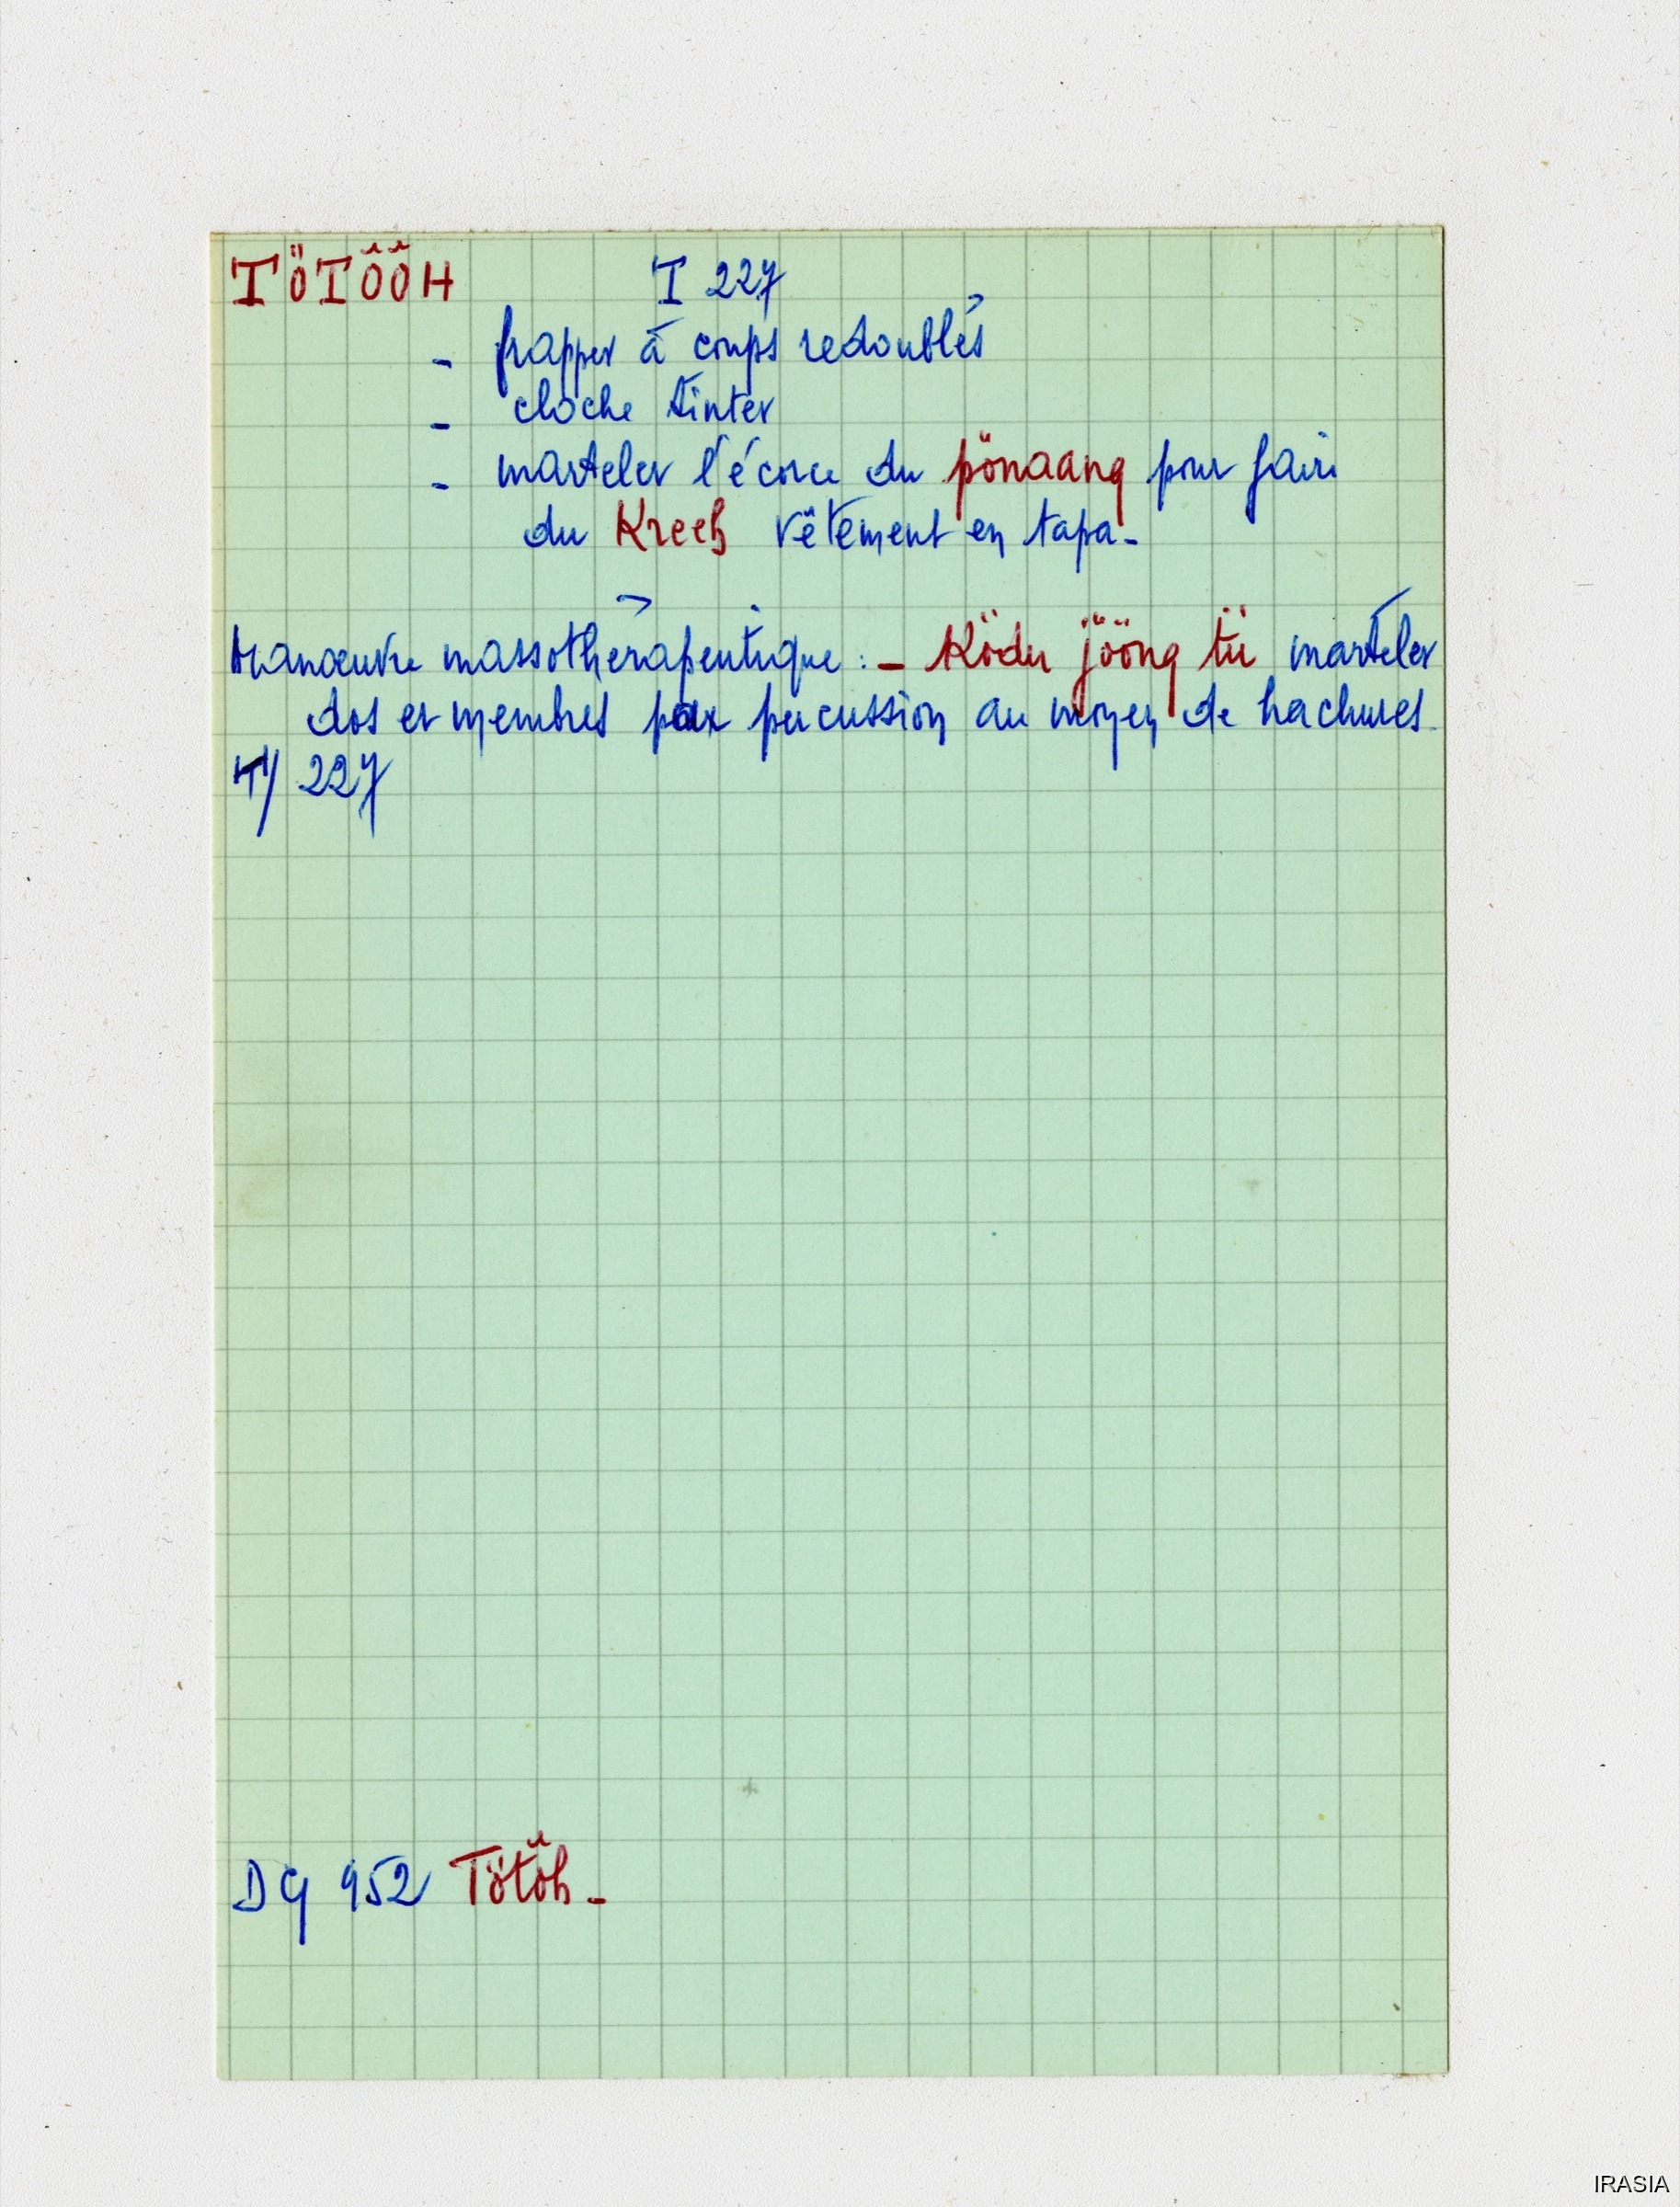 TÖTÔÔH T 227
- frapper à coups redoublés
- cloche tinter
- marteler l'écorce du pönaang pour faire
du Kreeb vêtement en tapa-
Manœuvre massothérapeutique : - Ködu jööng tii marteler
dos et membres par percussion au moyen de hachures
T/ 227
DG 952 Tötôh -
IRASIA